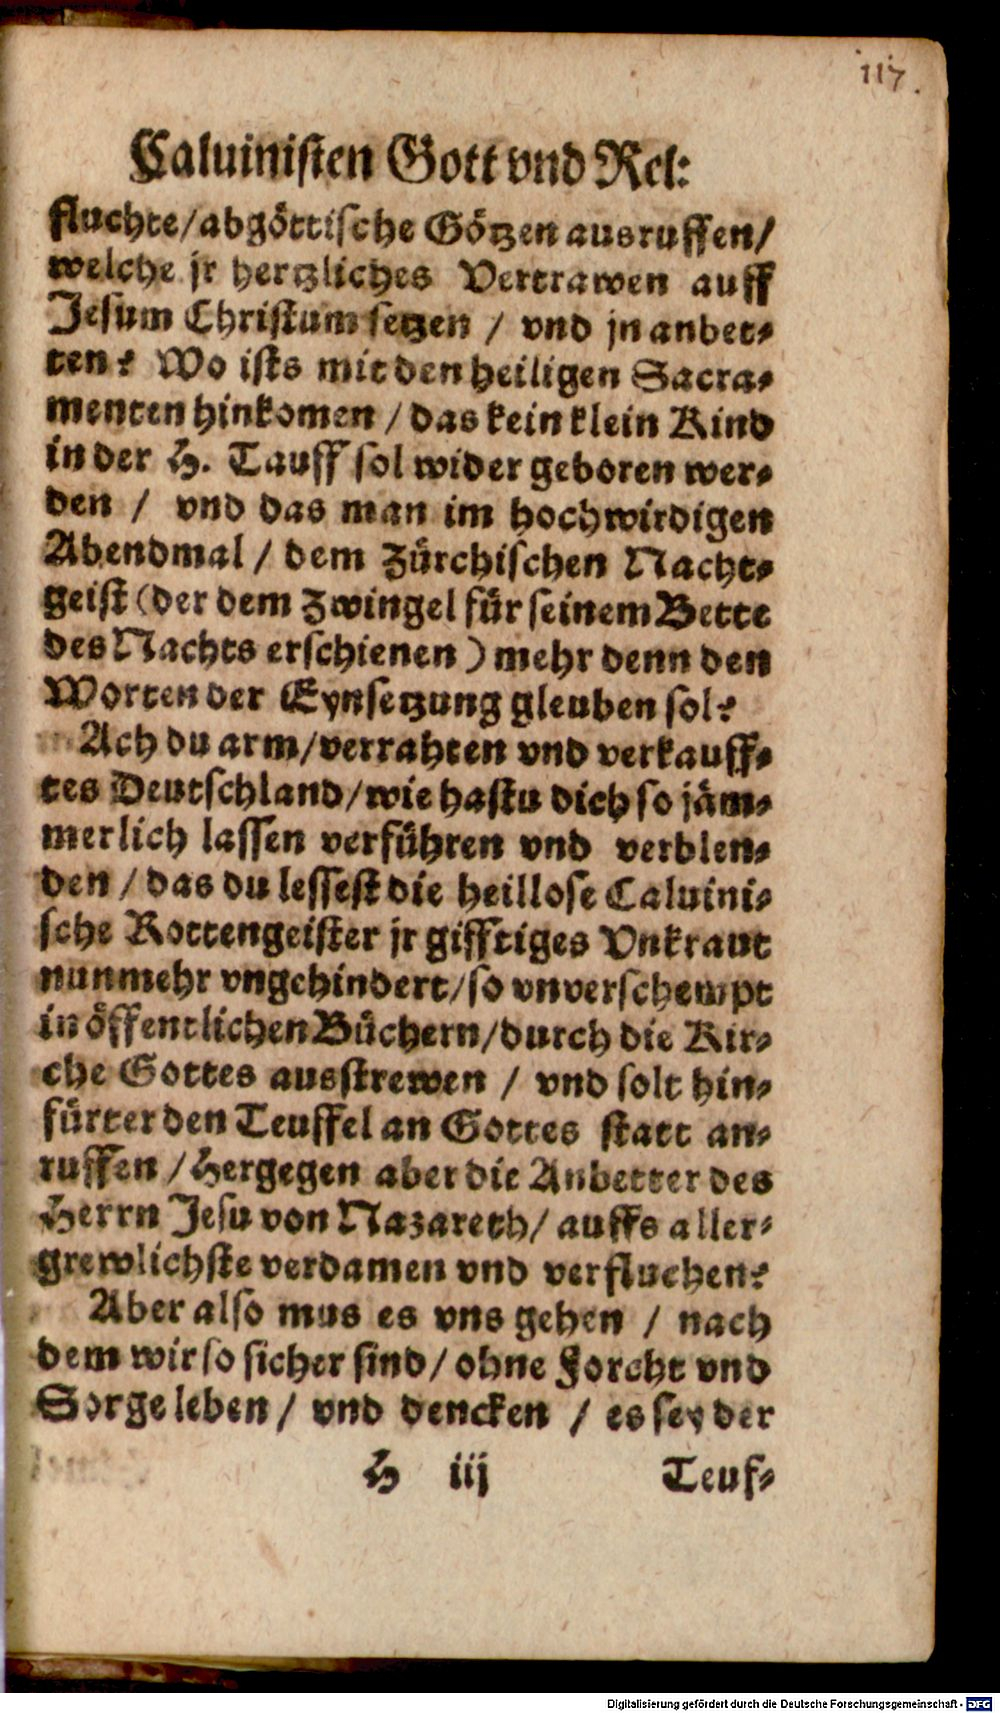 117.
Caluinisten Gott vnd Rel:
fluchte/abgöttische Götzen ausruffen/
welche jr hertzliches Vertrawen auff
Jesum Christum setzen / vnd jn anbet-
ten? Wo ists mit den heiligen Sacra-
menten hinkomen / das kein klein Kind
in der H. Tauff sol wider geboren wer-
den / vnd das man im hochwirdigen
Abendmal / dem Zürchischen Nacht-
geist (der dem Zwingel für seinem Bette
des Nachts erschienen) mehr denn den
Worten der Eynsetzung gleuben sol?
Ach du arm/verrahten vnd verkauff-
tes Deutschland/wie hastu dich so jäm-
merlich lassen verführen vnd verblen-
den / das du lessest die heillose Caluini-
sche Rottengeister jr gifftiges Vnkraut
nunmehr vngehindert/so vnverschempt
in öffentlichen Büchern/durch die Kir-
che Gottes ausstrewen / vnd solt hin-
fürter den Teuffel an Gottes statt an-
ruffen / Hergegen aber die Anbetter des
Herrn Jesu von Nazareth/ auffs aller-
grewlichste verdamen vnd verfluchen?
Aber also mus es vns gehen / nach
dem wir so sicher sind/ ohne Forcht vnd
Sorge leben / vnd dencken / es sey der
H iij Teuf-
Digitalisierung gefördert durch die Deutsche Forschungsgemeinschaft - DFG